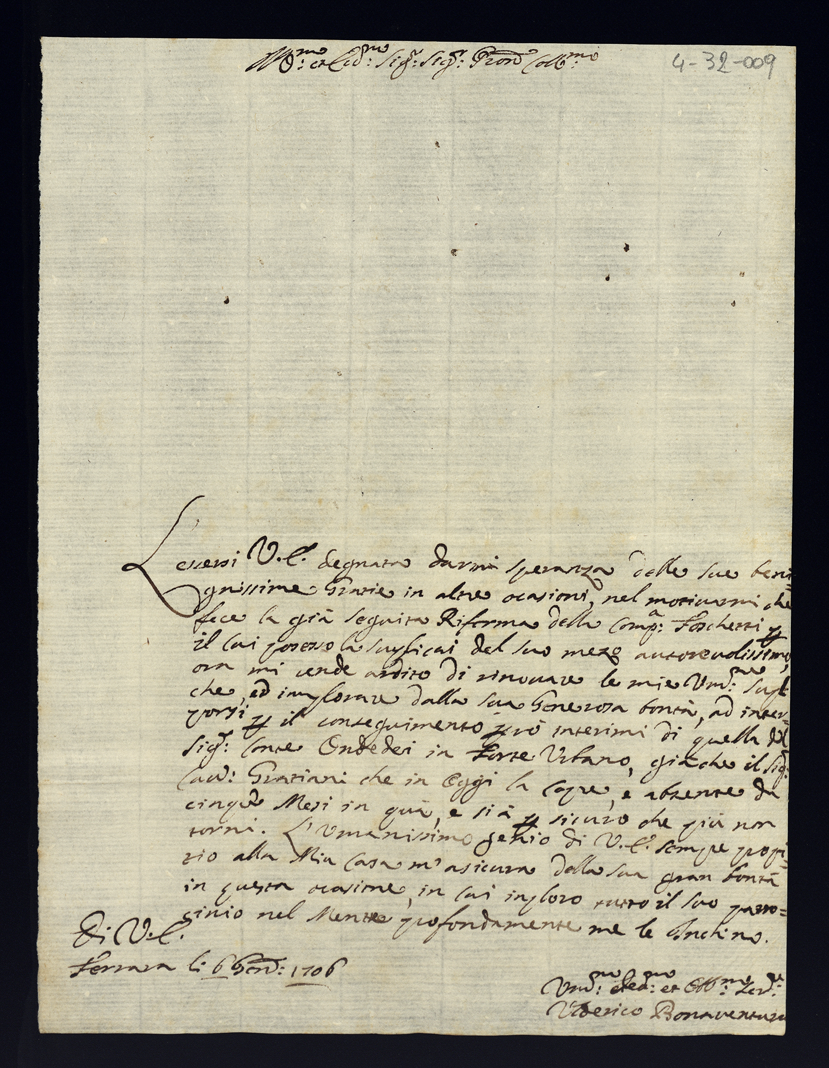 Ill.mo: et Ecc.mo: Sig.r: Sig.r: Pron Coll.mo:
4-32-009
L'essersi V.E. degnata darmi speranza delle sue beni=
gnissime Gratie in altre ocasioni, nel motivarmi che
fece la già seguita Riforma della Comp.a: Foschetti p
il cui posesso la suplicai del suo mezo autorevolissimo,
ora mi rende ardito di rinovare le mie Um.me: supl
che, ed implorare dalla sua Generosa bontà, ad inter=
porsi p il conseguimento però interimi di quella del
Sig.r: Conte Ondedei in Forte Urbano, giàche il Sig.r:
Cav.: Gratiani che in Oggi la copre, è absente da
cinque Mesi in quà, e si à p sicuro che più non
torni. L'Umanissimo genio di V.E. sempre propi=
tio alla Mia Casa m'asicura della sua gran bontà
in questa ocasione, in cui imploro tutto il suo patro=
cinio nel Mentre profondamente me le Inchino.
Di V.E.
Ferrara li 6 Gen.: 1706
Um.mo: et Obb.mo: Ser.re:
Uderico Bonaventura